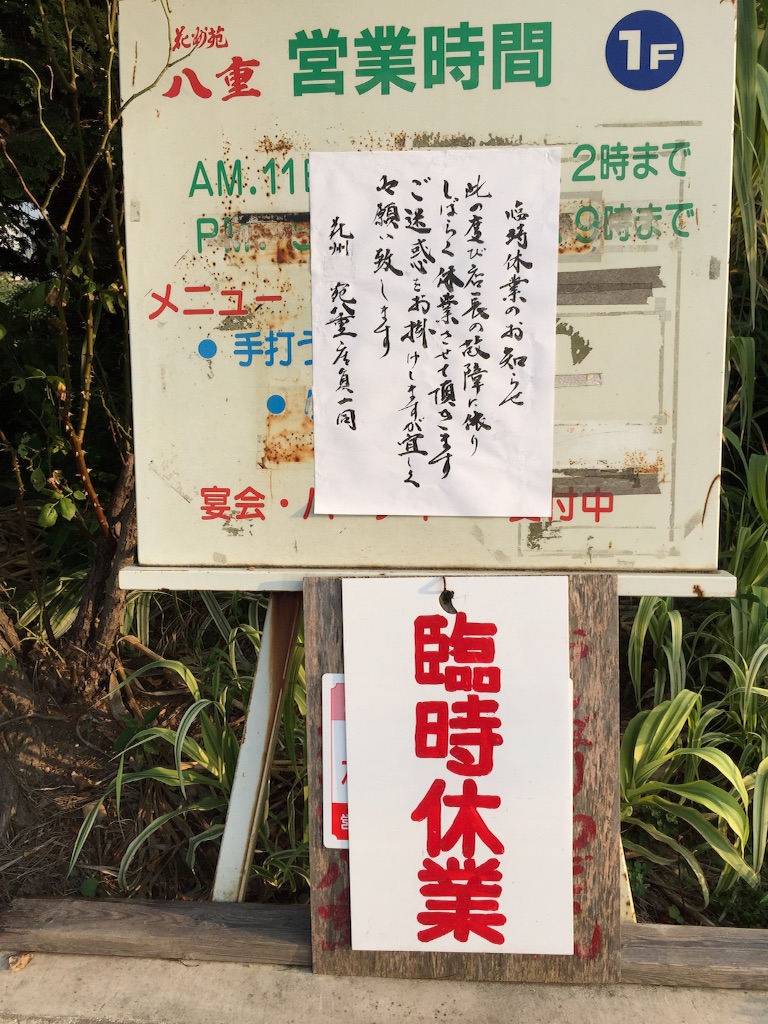 花州苑
八重
営業時間
1F
AM.11
2時まで
PM. 5
9時まで
メニュー
●手打う
宴会・パ
受付中
臨時休業のお知らせ
此の度び店長の故障に依り
しばらく休業させて頂きます
ご迷惑をお掛けしますが宜しく
お願い致します
花州 苑八重店員一同
臨時休業
営